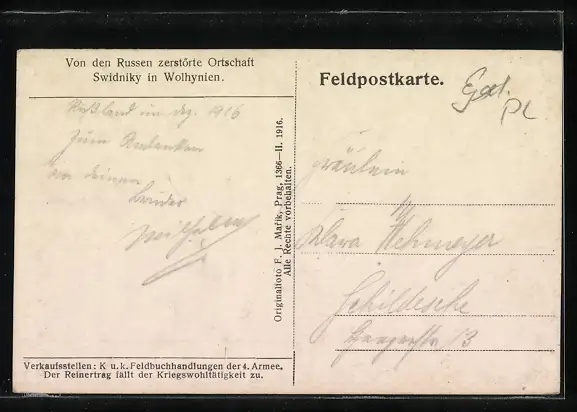 Von den Russen zerstörte Ortschaft
Swidniky in Wolhynien.
Rußland im Dez. 1916
Zum Andenken
von deinem
Bruder
Wilhelm
Verkaufsstellen: K u. k. Feldbuchhandlungen der 4. Armee.
Der Reinertrag fällt der Kriegswohltätigkeit zu.
Originalfoto F. J. Mařik, Prag, 1366—II. 1916.
Alle Rechte vorbehalten.
Feldpostkarte.
Gal.
PL
Fräulein
Klara Wehmeyer
Schildesche